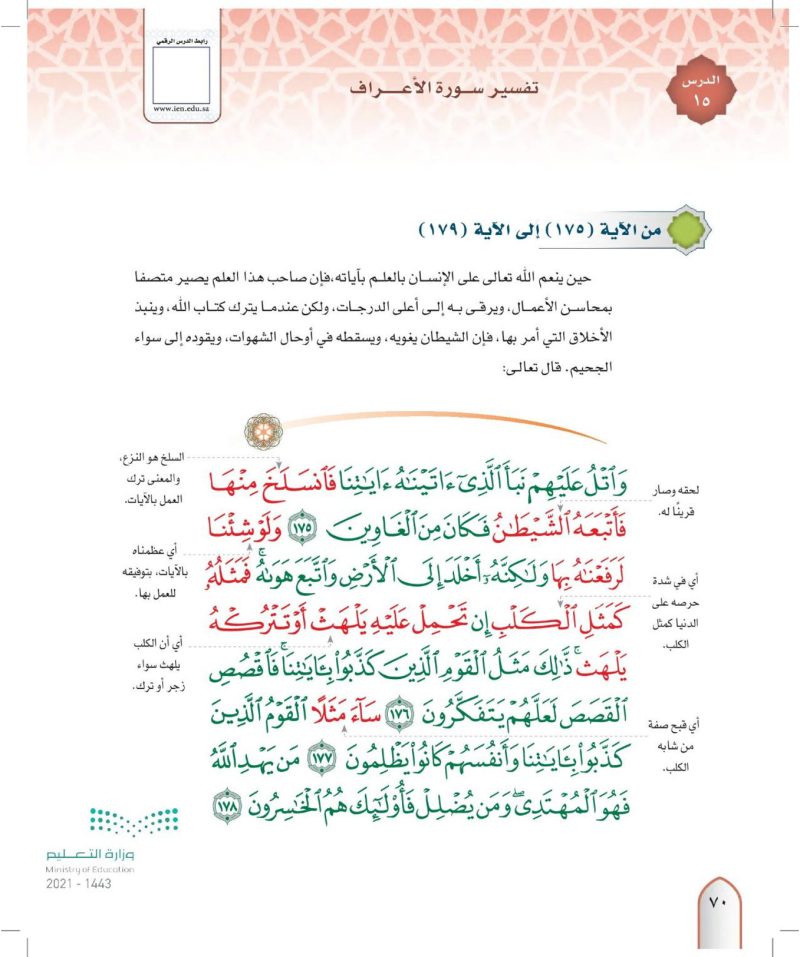 رابط الدرس الرقمي
www.ien.edu.sa
تفسير سورة الأعراف
الدرس
١٥
من الآية (١٧٥) إلى الآية (١٧٩)
حين ينعم الله تعالى على الإنسان بالعلم بآياته،فإن صاحب هذا العلم يصير متصفا
بمحاسن الأعمال، ويرقى به إلى أعلى الدرجات، ولكن عندما يترك كتاب الله، وينبذ
الأخلاق التي أمر بها، فإن الشيطان يغويه، ويسقطه في أوحال الشهوات، ويقوده إلى سواء
الجحيم. قال تعالى:
وَٱتۡلُ عَلَيۡهِمۡ نَبَأَ ٱلَّذِيٓ ءَاتَيۡنَٰهُ ءَايَٰتِنَا فَٱنسَلَخَ مِنۡهَا
فَأَتۡبَعَهُ ٱلشَّيۡطَٰنُ فَكَانَ مِنَ ٱلۡغَاوِينَ ١٧٥ وَلَوۡ شِئۡنَا
لَرَفَعۡنَٰهُ بِهَا وَلَٰكِنَّهُۥٓ أَخۡلَدَ إِلَى ٱلۡأَرۡضِ وَٱتَّبَعَ هَوَىٰهُۚ فَمَثَلُهُۥ
كَمَثَلِ ٱلۡكَلۡبِ إِن تَحۡمِلۡ عَلَيۡهِ يَلۡهَثۡ أَوۡ تَتۡرُكۡهُ
يَلۡهَثۚ ذَّٰلِكَ مَثَلُ ٱلۡقَوۡمِ ٱلَّذِينَ كَذَّبُواْ بِـَٔايَٰتِنَاۚ فَٱقۡصُصِ
ٱلۡقَصَصَ لَعَلَّهُمۡ يَتَفَكَّرُونَ ١٧٦ سَآءَ مَثَلًا ٱلۡقَوۡمُ ٱلَّذِينَ
كَذَّبُواْ بِـَٔايَٰتِنَا وَأَنفُسَهُمۡ كَانُواْ يَظۡلِمُونَ ١٧٧ مَن يَهۡدِ ٱللَّهُ
فَهُوَ ٱلۡمُهۡتَدِيۖ وَمَن يُضۡلِلۡ فَأُوْلَٰٓئِكَ هُمُ ٱلۡخَٰسِرُونَ ١٧٨
لحقه وصار
قرينًا له.
أي في شدة
حرصه على
الدنيا كمثل
الكلب.
أي قبح صفة
من شابه
الكلب.
السلخ هو النزع،
والمعنى ترك
العمل بالآيات.
أي عظمناه
بالآيات، بتوفيقه
للعمل بها.
أي أن الكلب
يلهث سواء
زجر أو ترك.
وزارة التعليم
Ministry of Education
2021 - 1443
٧٠